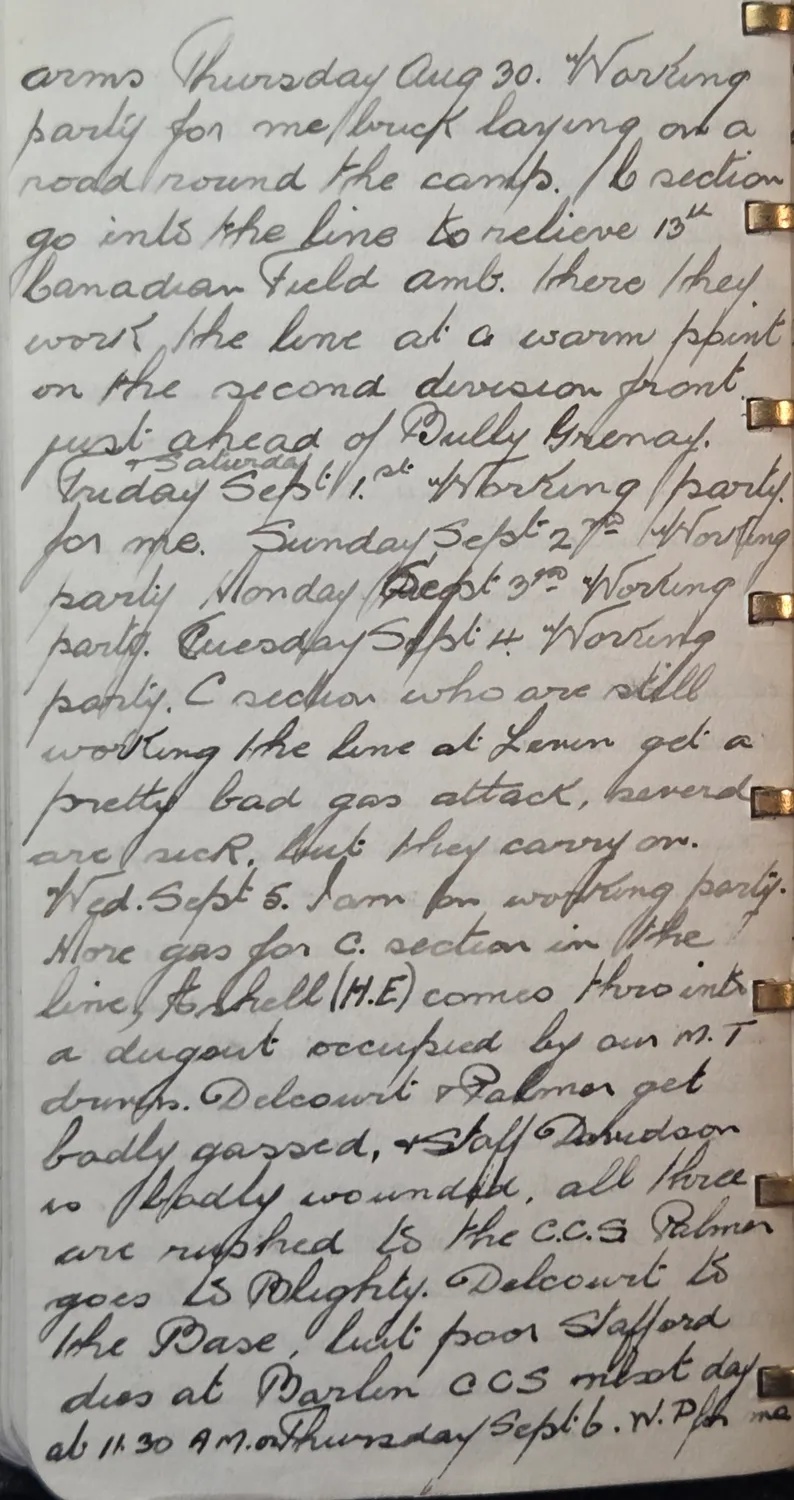 arms Thursday Aug 30. Working
party for me brick laying on a
road round the camp. C section
go into the line to relieve 13th
Canadian Field amb. there they
work the line at a warm point
on the second division front
just ahead of Bully Grenay.
+ Saturday
Friday Sept 1.st Working party.
for me. Sunday Sept 2nd Working
party Monday Sept 3rd Working
party. Tuesday Sept 4 Working
party. C section who are still
working the line at Levin get a
pretty bad gas attack, several
are sick, but they carry on.
Wed. Sept 5. I am on working party.
More gas for C. section in the
line, A shell (H.E) comes thro into
a dugout occupied by our M.T
drivers. Delcourt + Palmer get
badly gassed, + Staff Davidson
is badly wounded, all three
are rushed to the C.C.S Palmer
goes to Blighty. Delcourt to
the Base, but poor Stafford
dies at Barlin CCS next day
at 11.30 A.M. on Thursday Sept 6. W.P for me